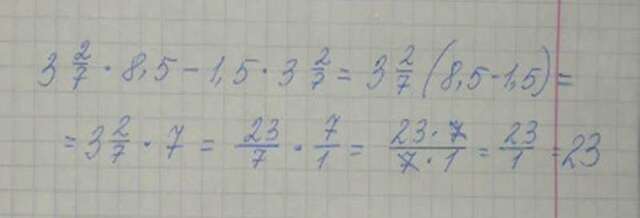 3 2/7 · 8,5 - 1,5 · 3 2/7 = 3 2/7 (8,5 - 1,5) =
= 3 2/7 · 7 = 23/7 · 7/1 = 23·7/7·1 = 23/1 = 23